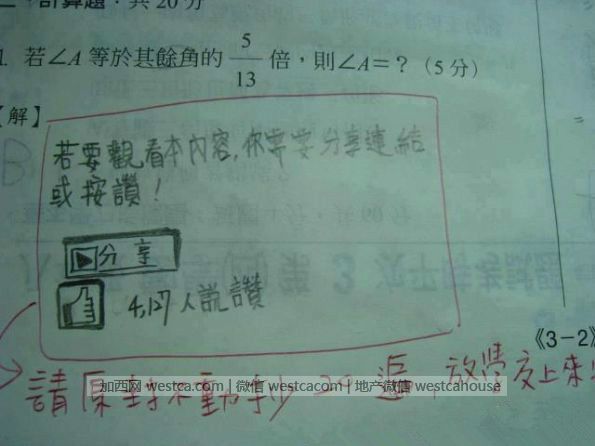 二、計算題：共20分
1. 若∠A 等於其餘角的 5/13 倍，則∠A=？（5分）
【解】
若要觀看本內容，你需要分享連結
或按讚！
分享
4,127人說讚
《3-2》
請原封不動抄 20 遍，放學交上來
加西网 westca.com | 微信 westcacom | 地产微信 westcahouse